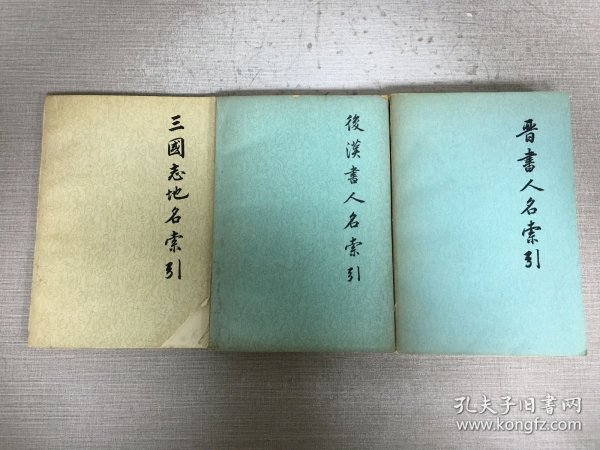 三國志地名索引
後漢書人名索引
晋書人名索引
孔夫子旧书网
www.kongfz.com